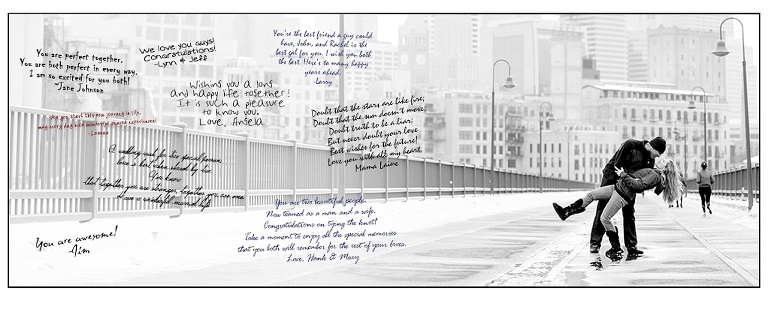 You are perfect together.
You are both perfect in every way.
I am so excited for you both!
~Jane Johnson
We love you guys!
Congratulations!
~Lynn & Jeff
You're the best friend a guy could
have, John, and Rachel is the
best gal for you. I wish you both
the best. Here's to many happy
years ahead.
~Larry
Wishing you a long
and happy life together!
It is such a pleasure
to know you.
Love, Angela
As you start this new journey in life,
may every day hold wonderful shared experiences!
Doubt that the stars are like fire;
Doubt that the sun doesn't move;
Doubt truth to be a liar;
But never doubt your love.
Best wishes for the future!
Love you with all my heart,
Mama Laine
A wedding wish for two special persons
You know
that together you are stronger, together you are one.
Have a wonderful married life
You are awesome!
~Jim
You are two beautiful people.
Now teamed as a man and a wife.
Congratulations on tying the knot!
Take a moment to enjoy all the special memories
that you both will remember for the rest of your lives.
Love, Hank & Mary